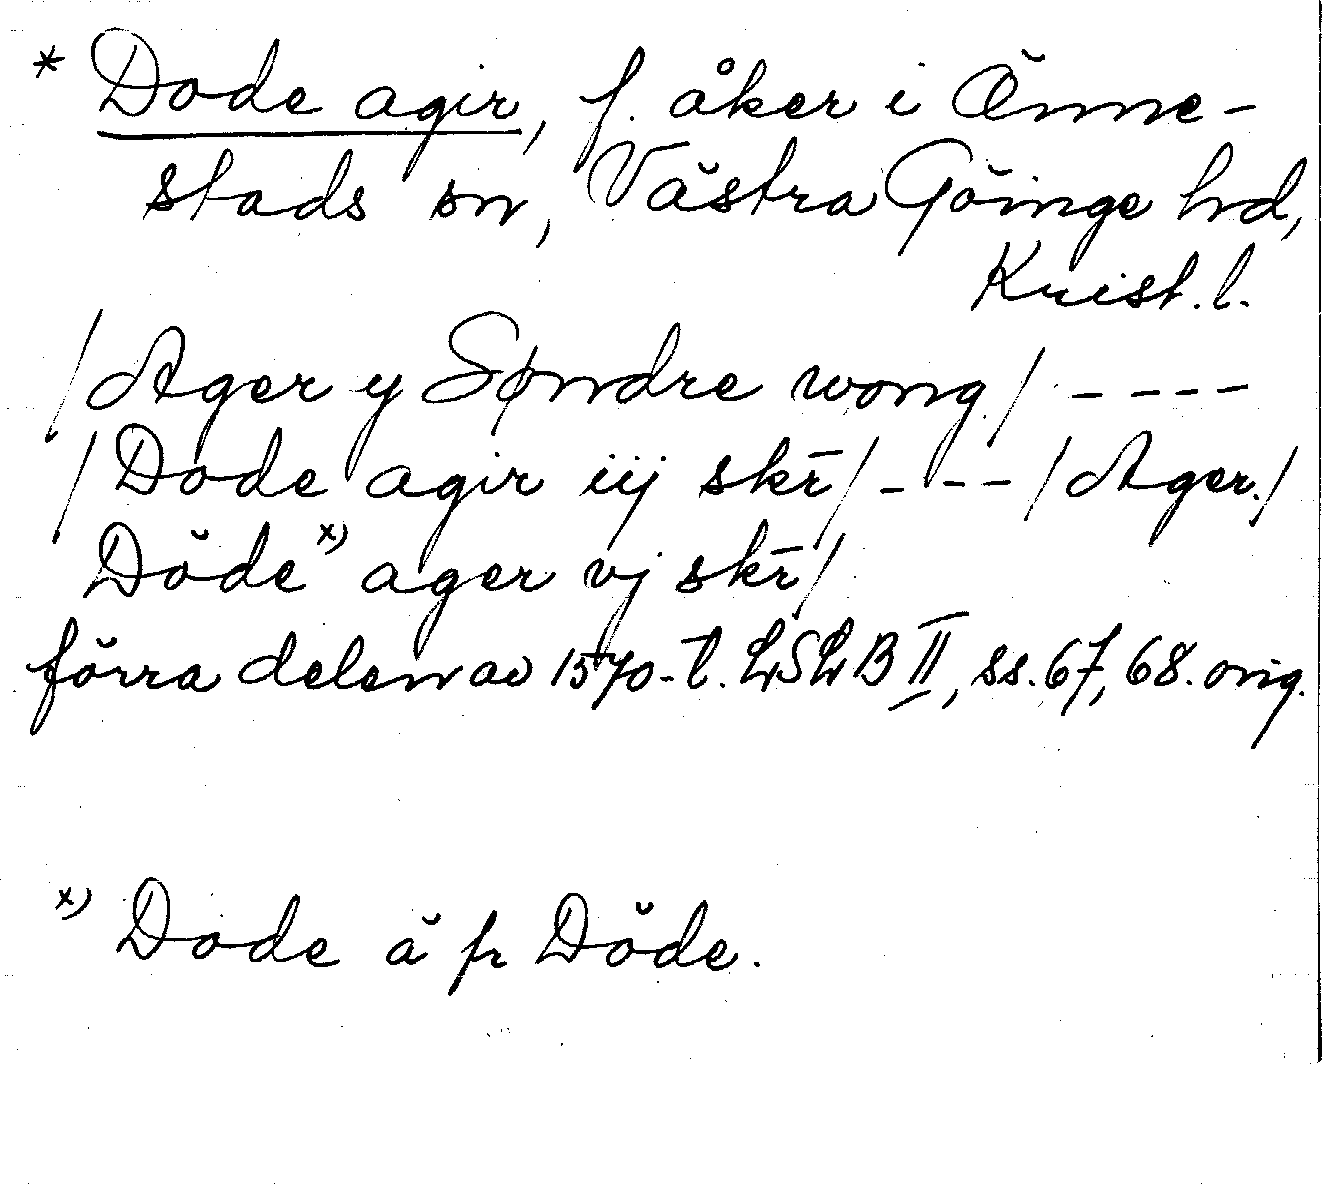 * Dode agir, f. åker i Önne-
stads sn, Västra Göinge hd,
Krist. l.
/Ager y Søndre wong./ ----
/Dode agir iij skr̄/ ---- /Ager./
Döde x) ager vj skr̄/
förra delen av 1570-t. LSLB II, ss. 67, 68. orig.
x) Dode ä fr Döde.